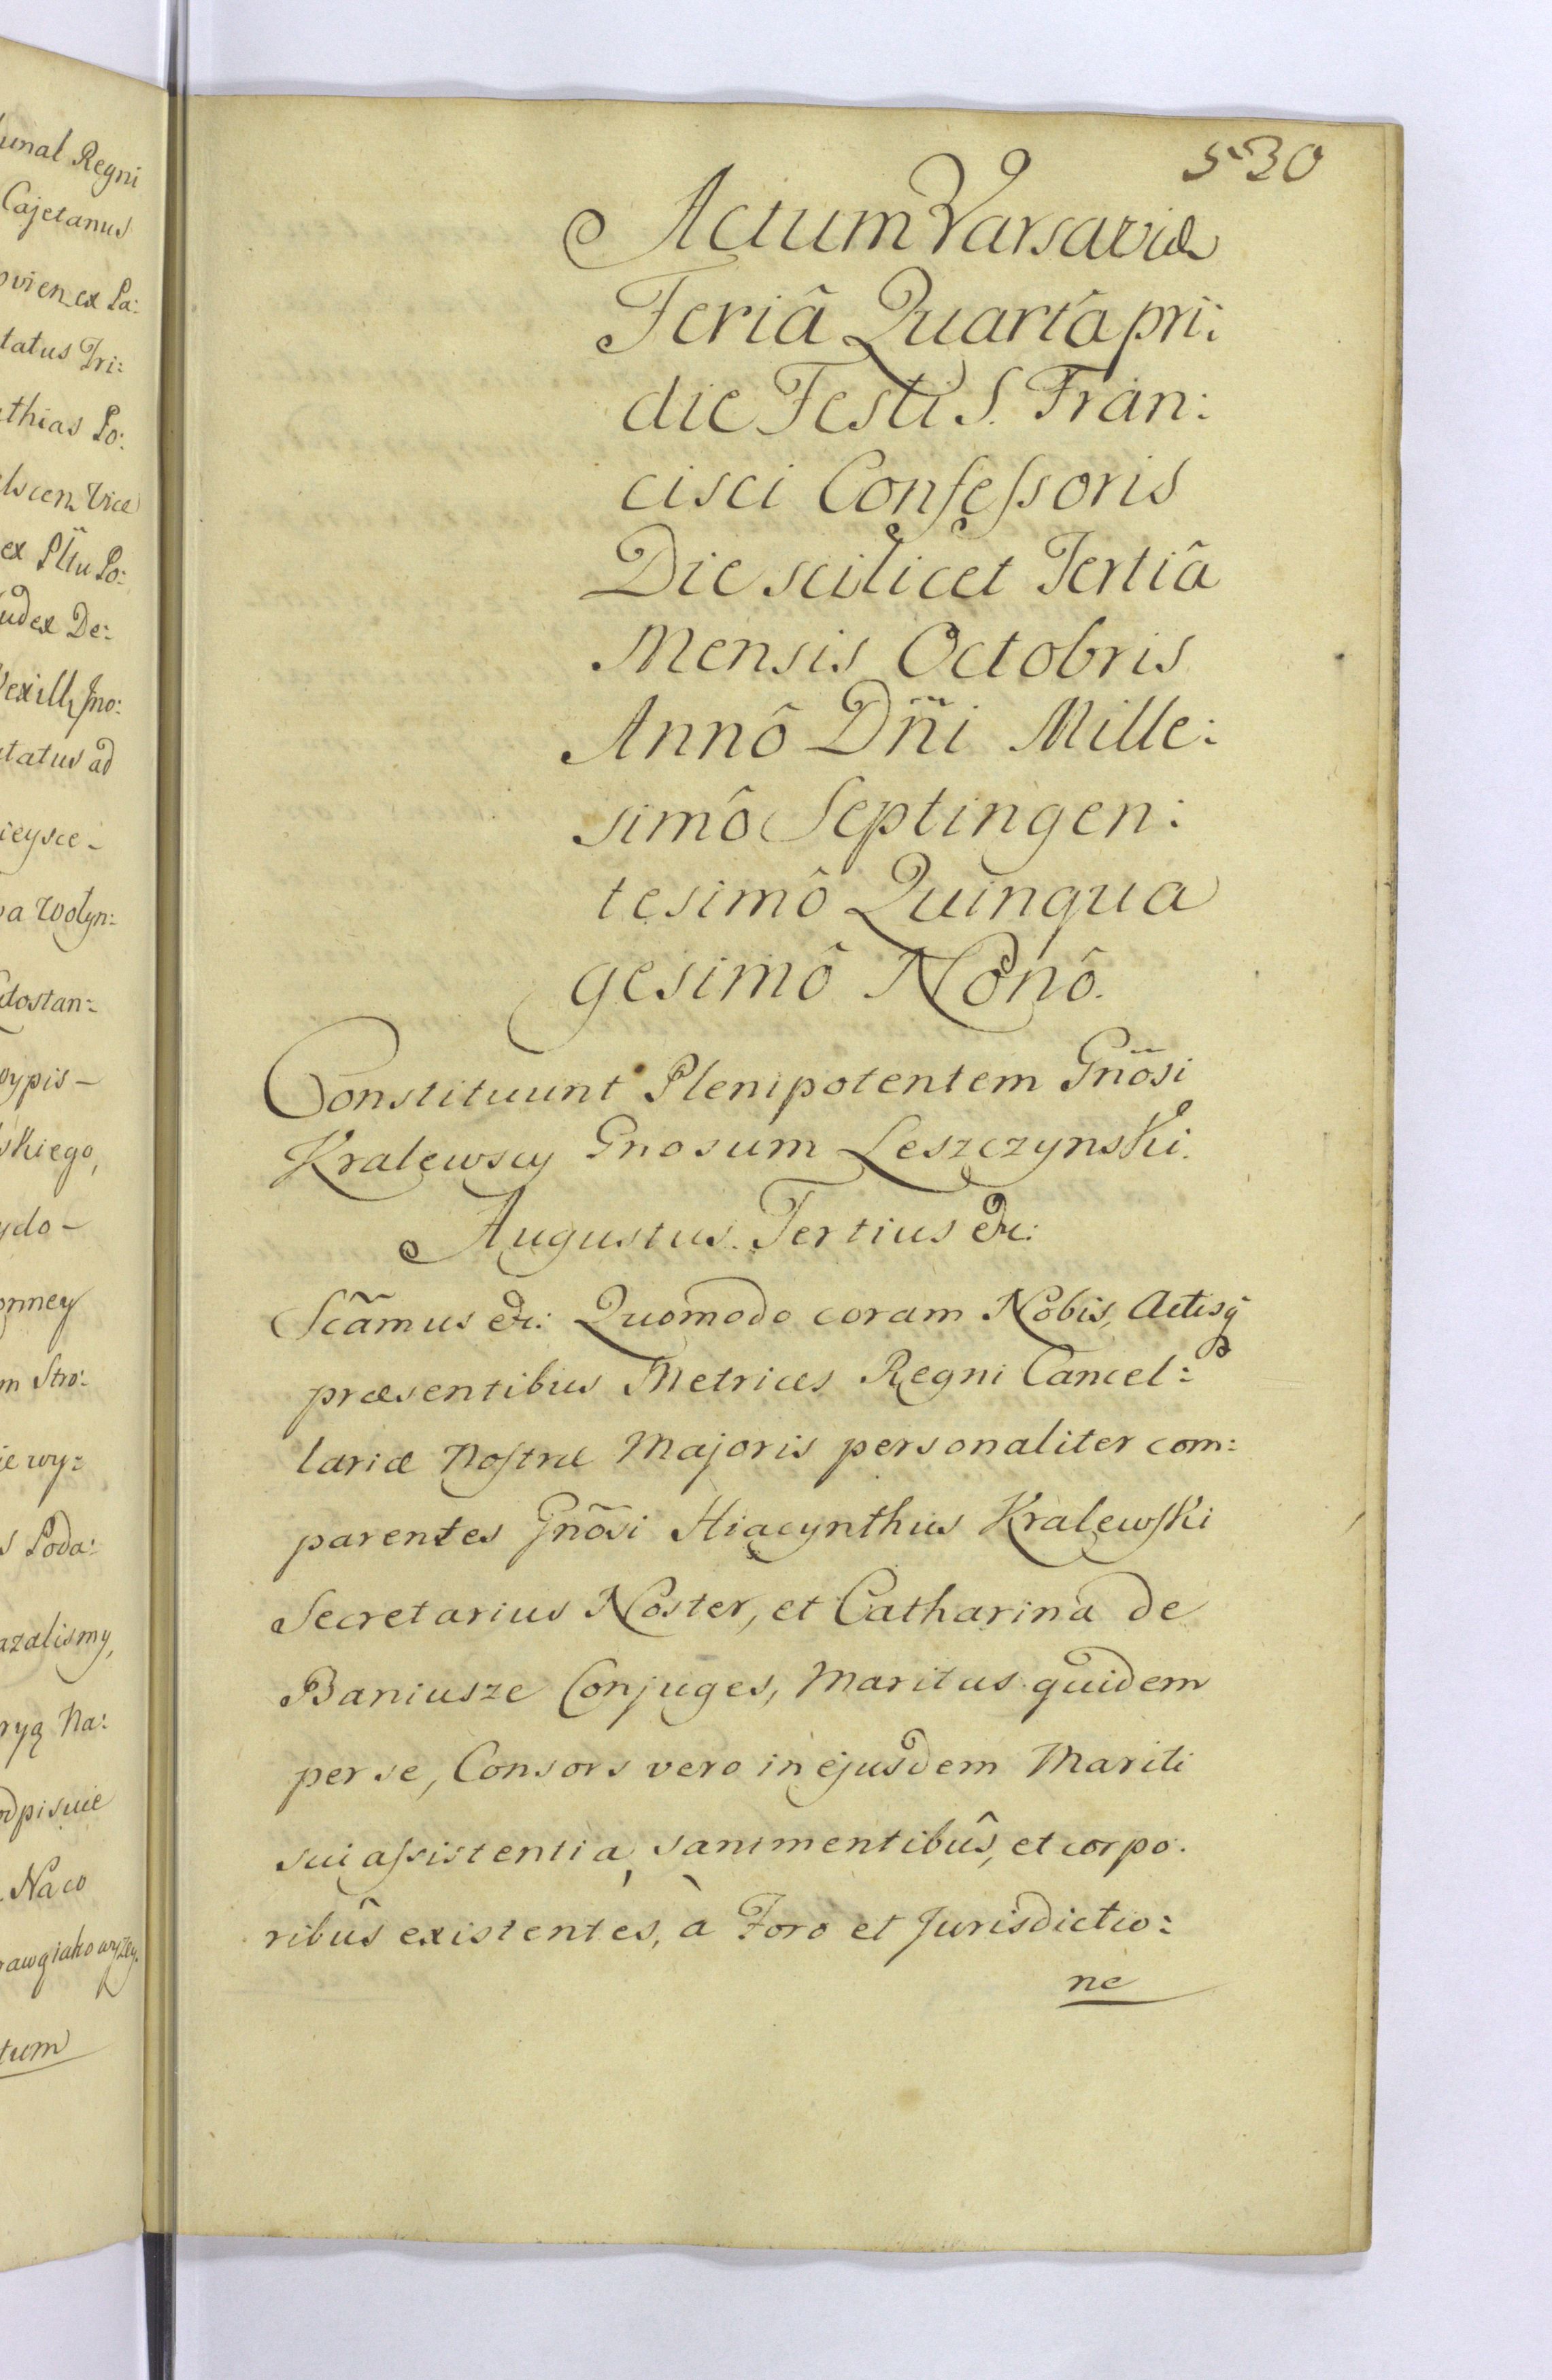 unal Regni
Cajetanus
ovien ex Pa:
tatus Tri:
thias Po:
lscen Vice
ex Pttu Po:
udex De:
Vexill Jno:
tatus ad
ieysce -
pa Wołyn:
dostan:
pypis -
skiego,
ydo -
onney
m Stro:
ie wy:
s Poda:
azalismy,
ryą Na:
odpisuie
Naco
tum
530
Actum Varsaviæ
Feriâ Quartâ pri:
die Festi S. Fran:
cisci Confeſsoris
Die scilicet Tertiâ
Mensis Octobris
Annô Dñi Mille:
simô Septingen:
tesimô Quinqua
gesimô Nonô.
Constituunt Plenipotentem Gñosi
Kralewscy Gnosum Leszczynski.
Augustus Tertius &c:
Scãmus &c: Quomodo coram Nobis, Actisq
præsentibus Metrices Regni Cancel:
lariæ Noſtræ Majoris personaliter com:
parentes Gnõsi Hiacynthus Kralewſki
Secretarius Noster, et Catharina de
Baniusze Conjuges, Maritus quidem
per se, Consors vero in ejusdem Mariti
sui aſsistentia, sani mentibûs, et corpo:
ribûs existentes, à Foro et Jurisdictio:
ne